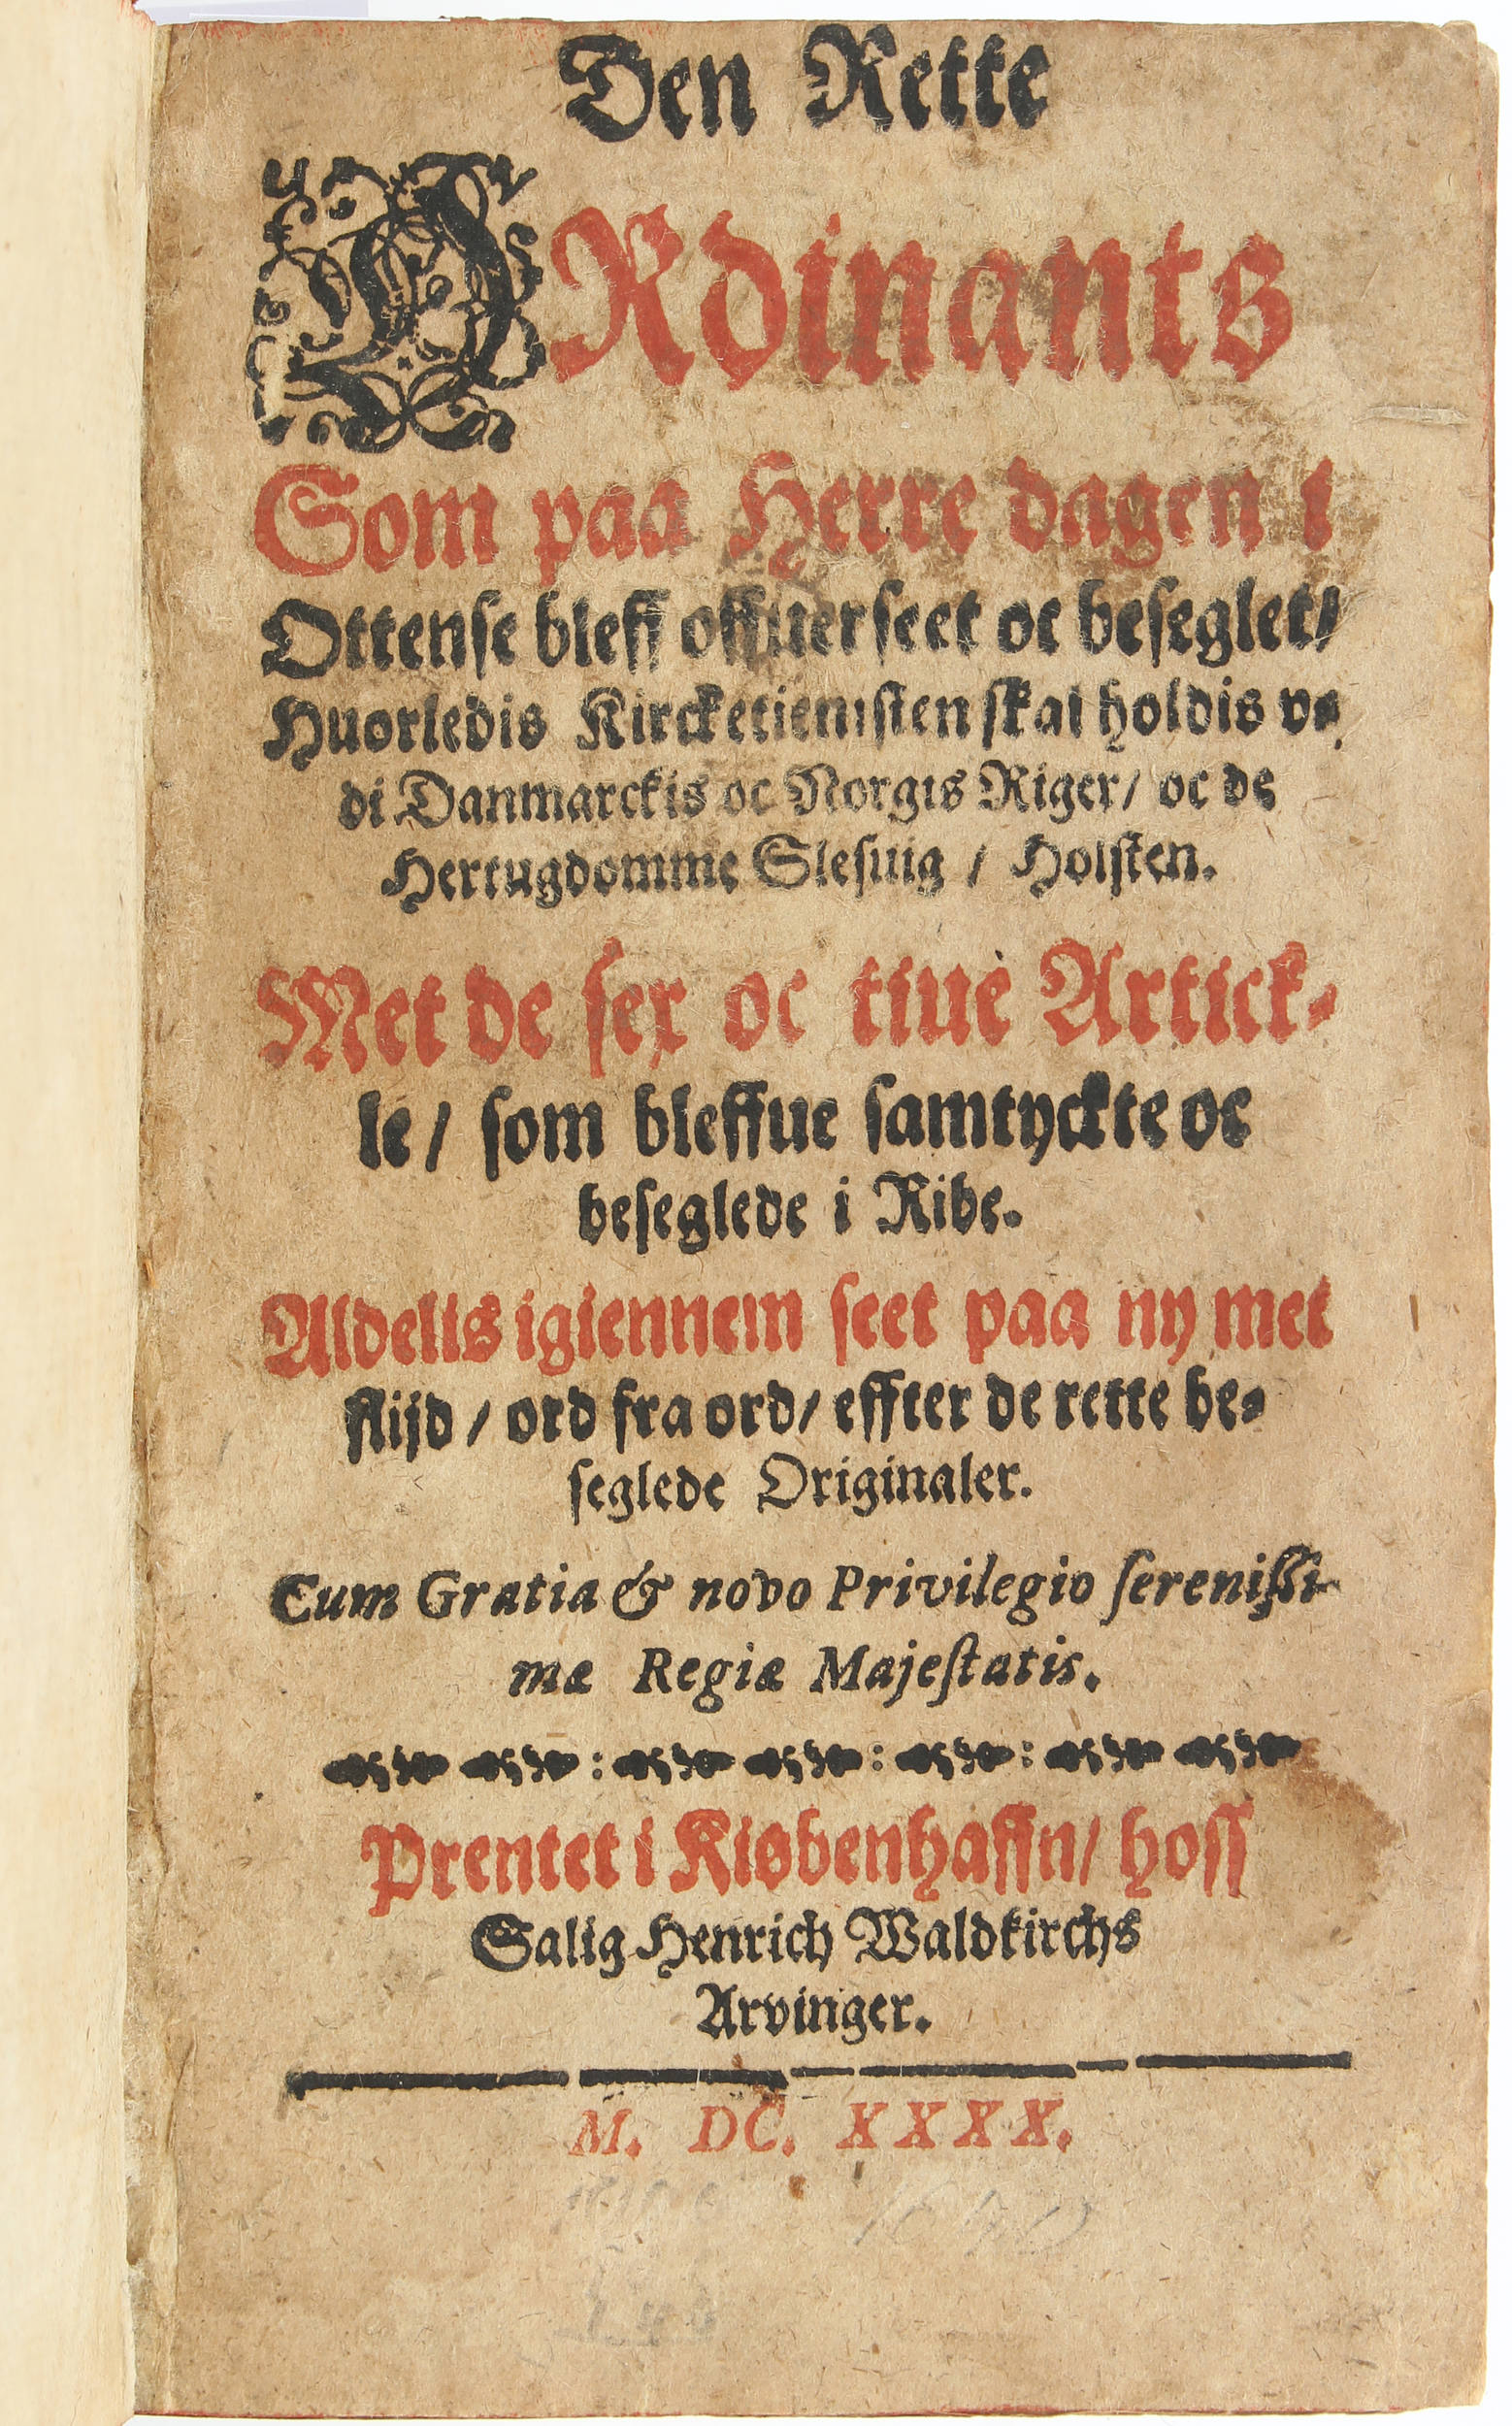 Den Rette
ORdinants
Som paa Herre dagen i
Ottense bleff offuerseet oc beseglet/
Huorledis Kircketienisten skal holdis v⸗
di Danmarckis oc Norgis Riger/ oc de
Hertugdomme Slesuig / Holsten.
Met de sex oc tiue Artick⸗
le / som bleffue samtyckte oc
beseglede i Ribe.
Aldelis igiennem seet paa ny met
flijd / ord fra ord/ effter de rette be⸗
seglede Originaler.
Cum Gratia & novo Privilegio serenissi-
mæ Regiæ Majestatis.
Prentet i Kiøbenhaffn/ hoss
Salig Henrich Waldkirchs
Arvinger.
M. DC. XXXX.